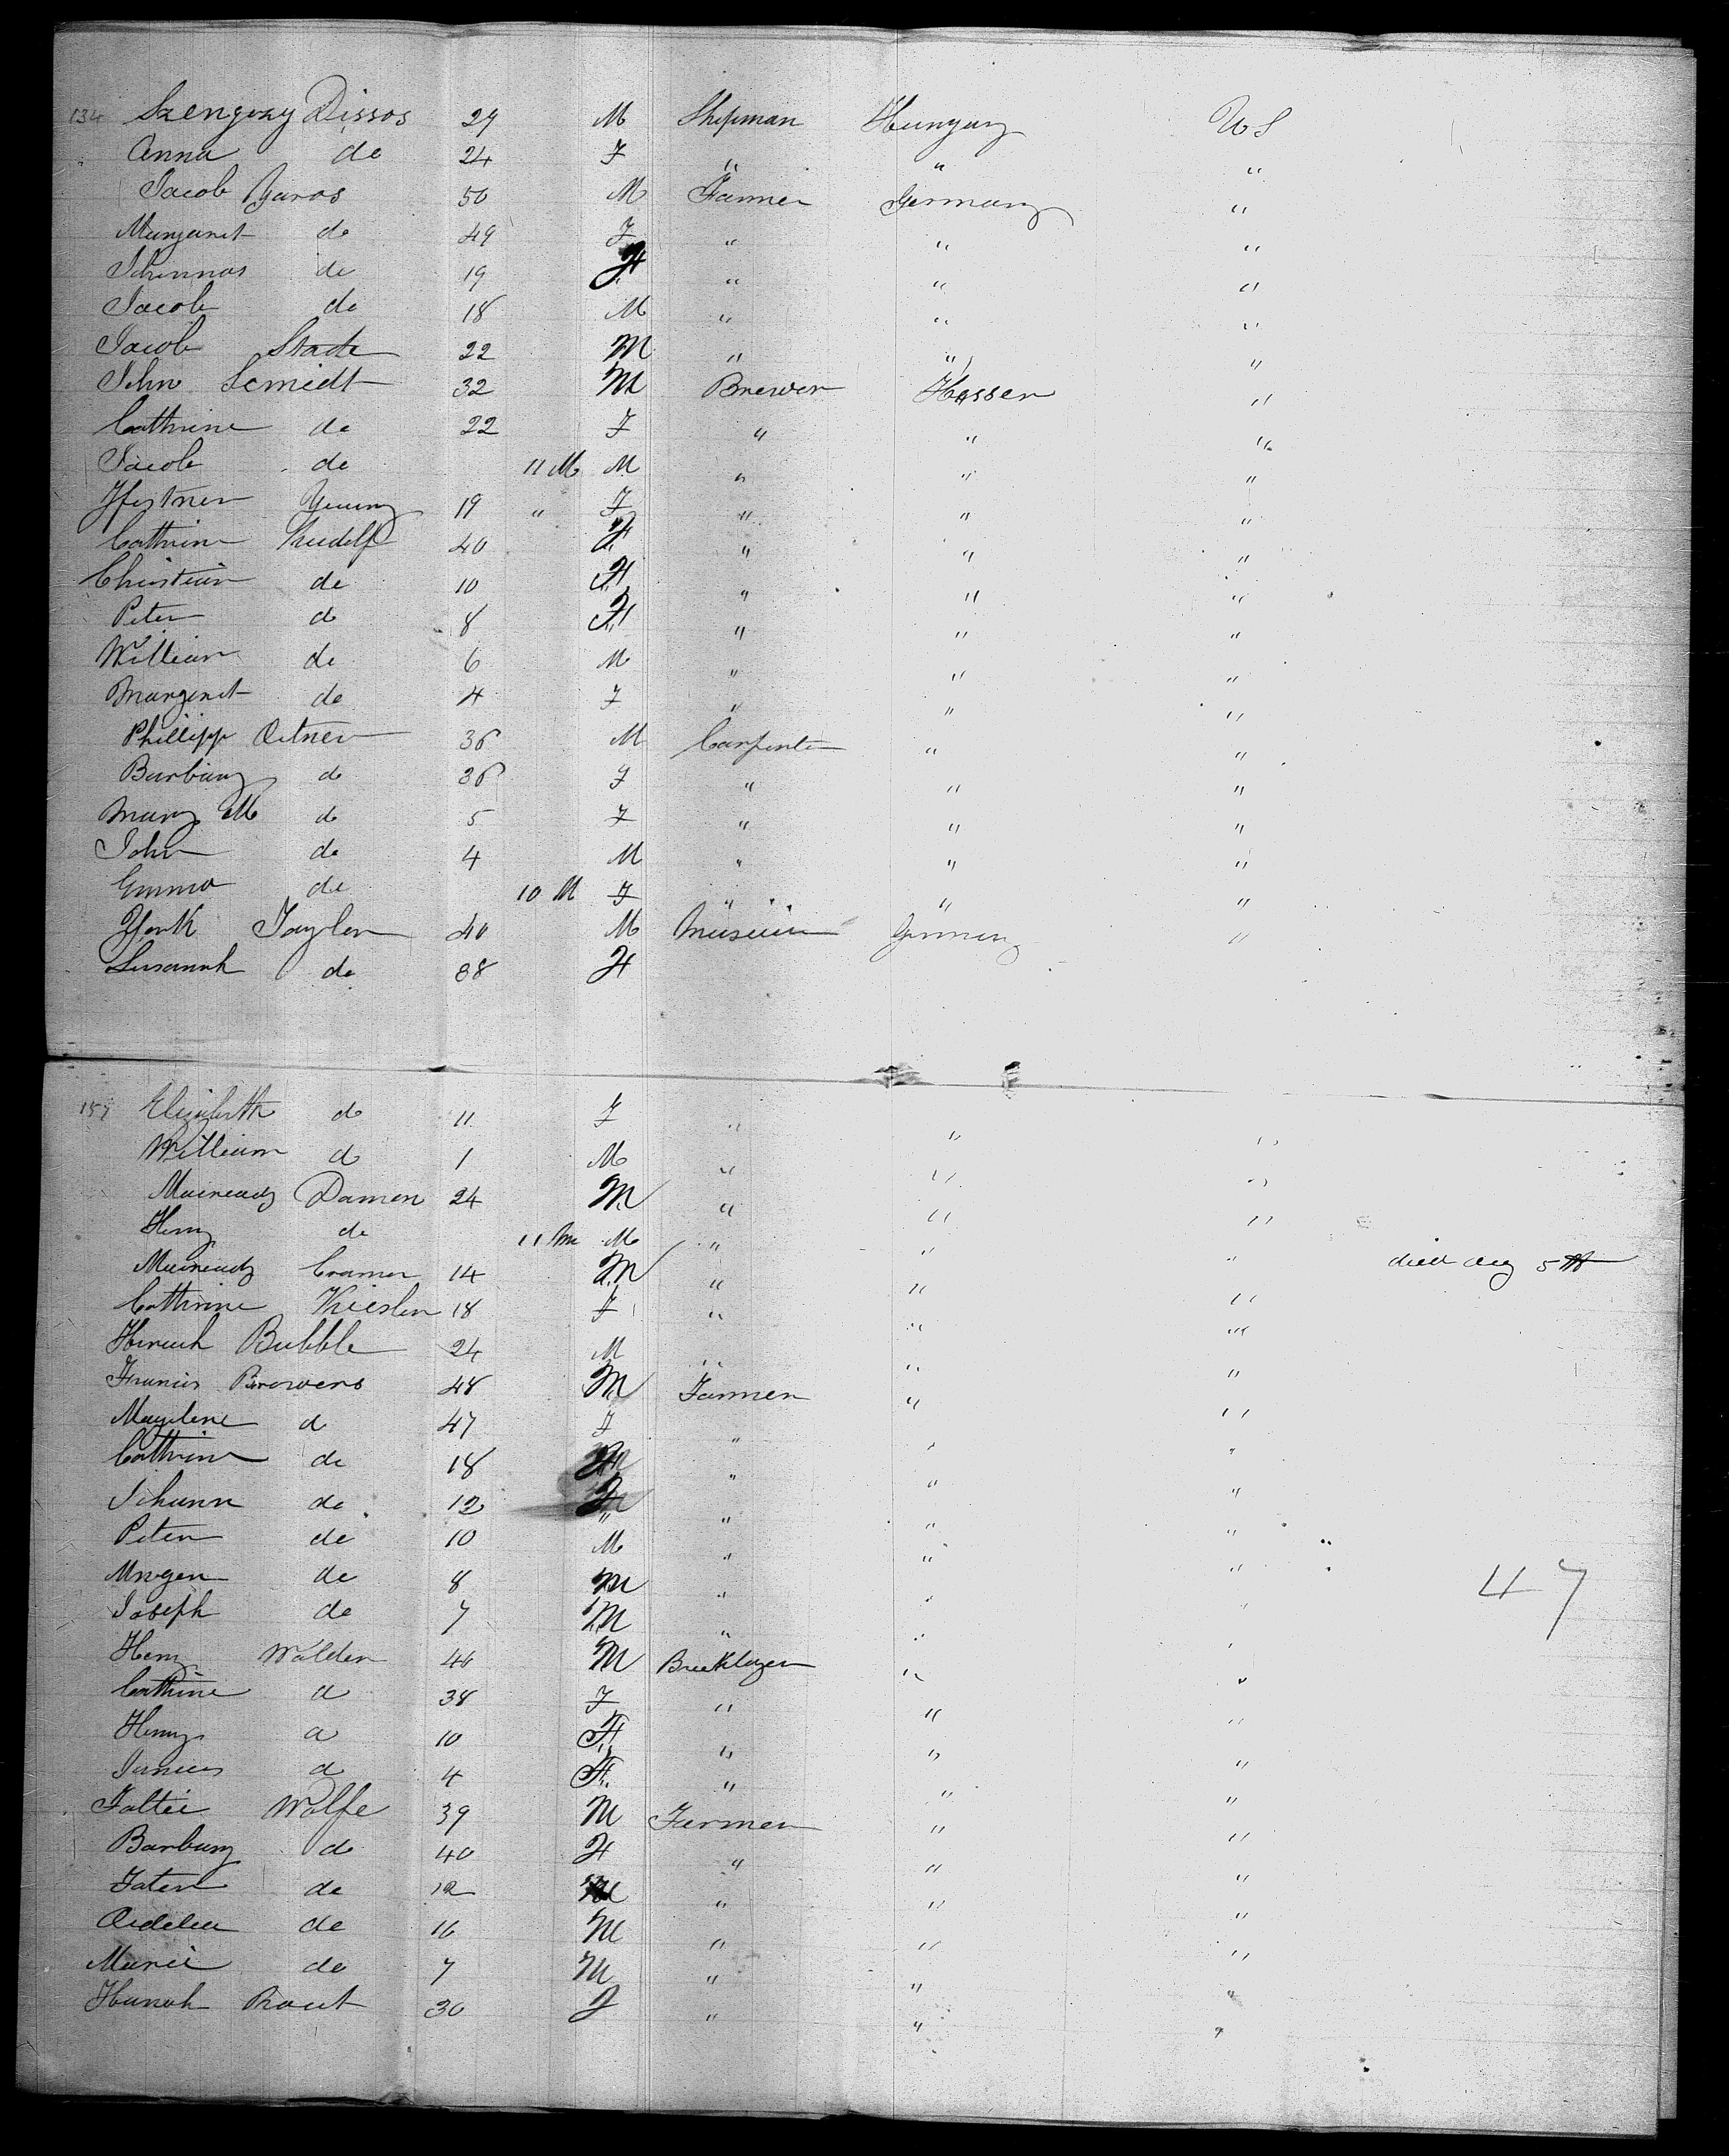 134 Szengozy Dissos 29 M Shipman Hungary US
Anna do 24 F " " "
Jacob Yaros 50 M Farmer Germany "
Margaret do 49 F " " "
Johannas do 19 F " " "
Jacob do 18 M " " "
Jacob Stade 22 M " " "
John Scmidt 32 M Brewer Hessen "
Cathrine do 22 F " " "
Jacob do 11 M M " " "
Young 19 " F " " "
Cathrine Rudolf 40 F " " "
Christian do 10 F " " "
Peter do 8 F " " "
William do 6 M " " "
Margeret do 4 F " " "
Phillipp Oetner 36 M Carpenter " "
Barbary do 36 F " " "
Mary M do 5 F " " "
John do 4 M " " "
Emma do 10 M F " " "
York Taylor 40 M Germany "
Susannah do 38 F
157 Elizabeth do 11 F " " "
William do 1 M " " "
Damen 24 M " " "
Henry do 11 M M " " " died Aug 5th
Cramer 14 M " " "
Cathrine Kiesler 18 F " " "
Heinrich Bubble 24 M " " "
Francis Browers 48 M Farmer " "
Magdlene do 47 F " " "
Cathrine do 18 F " " "
Johann do 12 " " "
Peter do 10 M " " "
do 8 M " " " 47
Joseph do 7 M " " "
Henry Walden 46 M Bricklayer " "
Cathrine do 38 F " " "
Henry do 10 F " " "
do 4 F " " "
Faltie Wolfe 39 M Farmer " "
Barbary do 40 F " " "
do 12 M " " "
do 16 M " " "
Marie do 7 M " " "
Hannah 30 F " " "